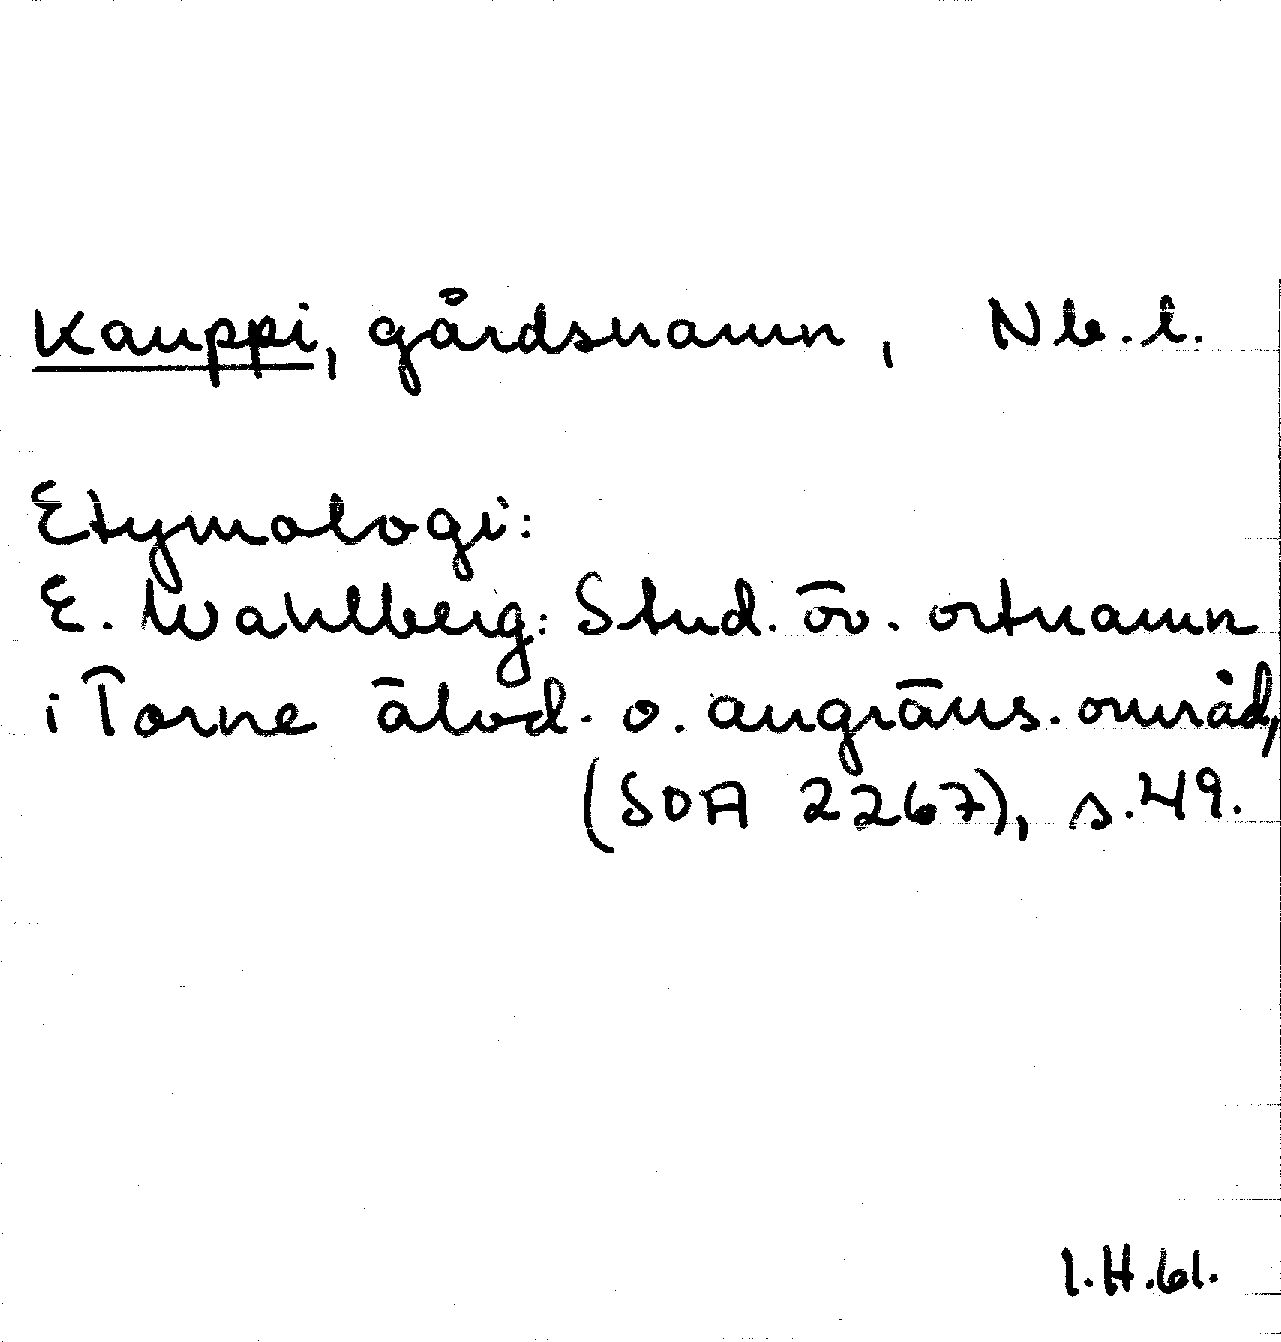 Kauppi, gårdsnamn, Nb. l.
Etymologi:
E. Wahlberg: Stud. öv. ortnamn
i Torne älvd. o. angräns. områd,
(SOA 2267), s. 49.
I.H.61.